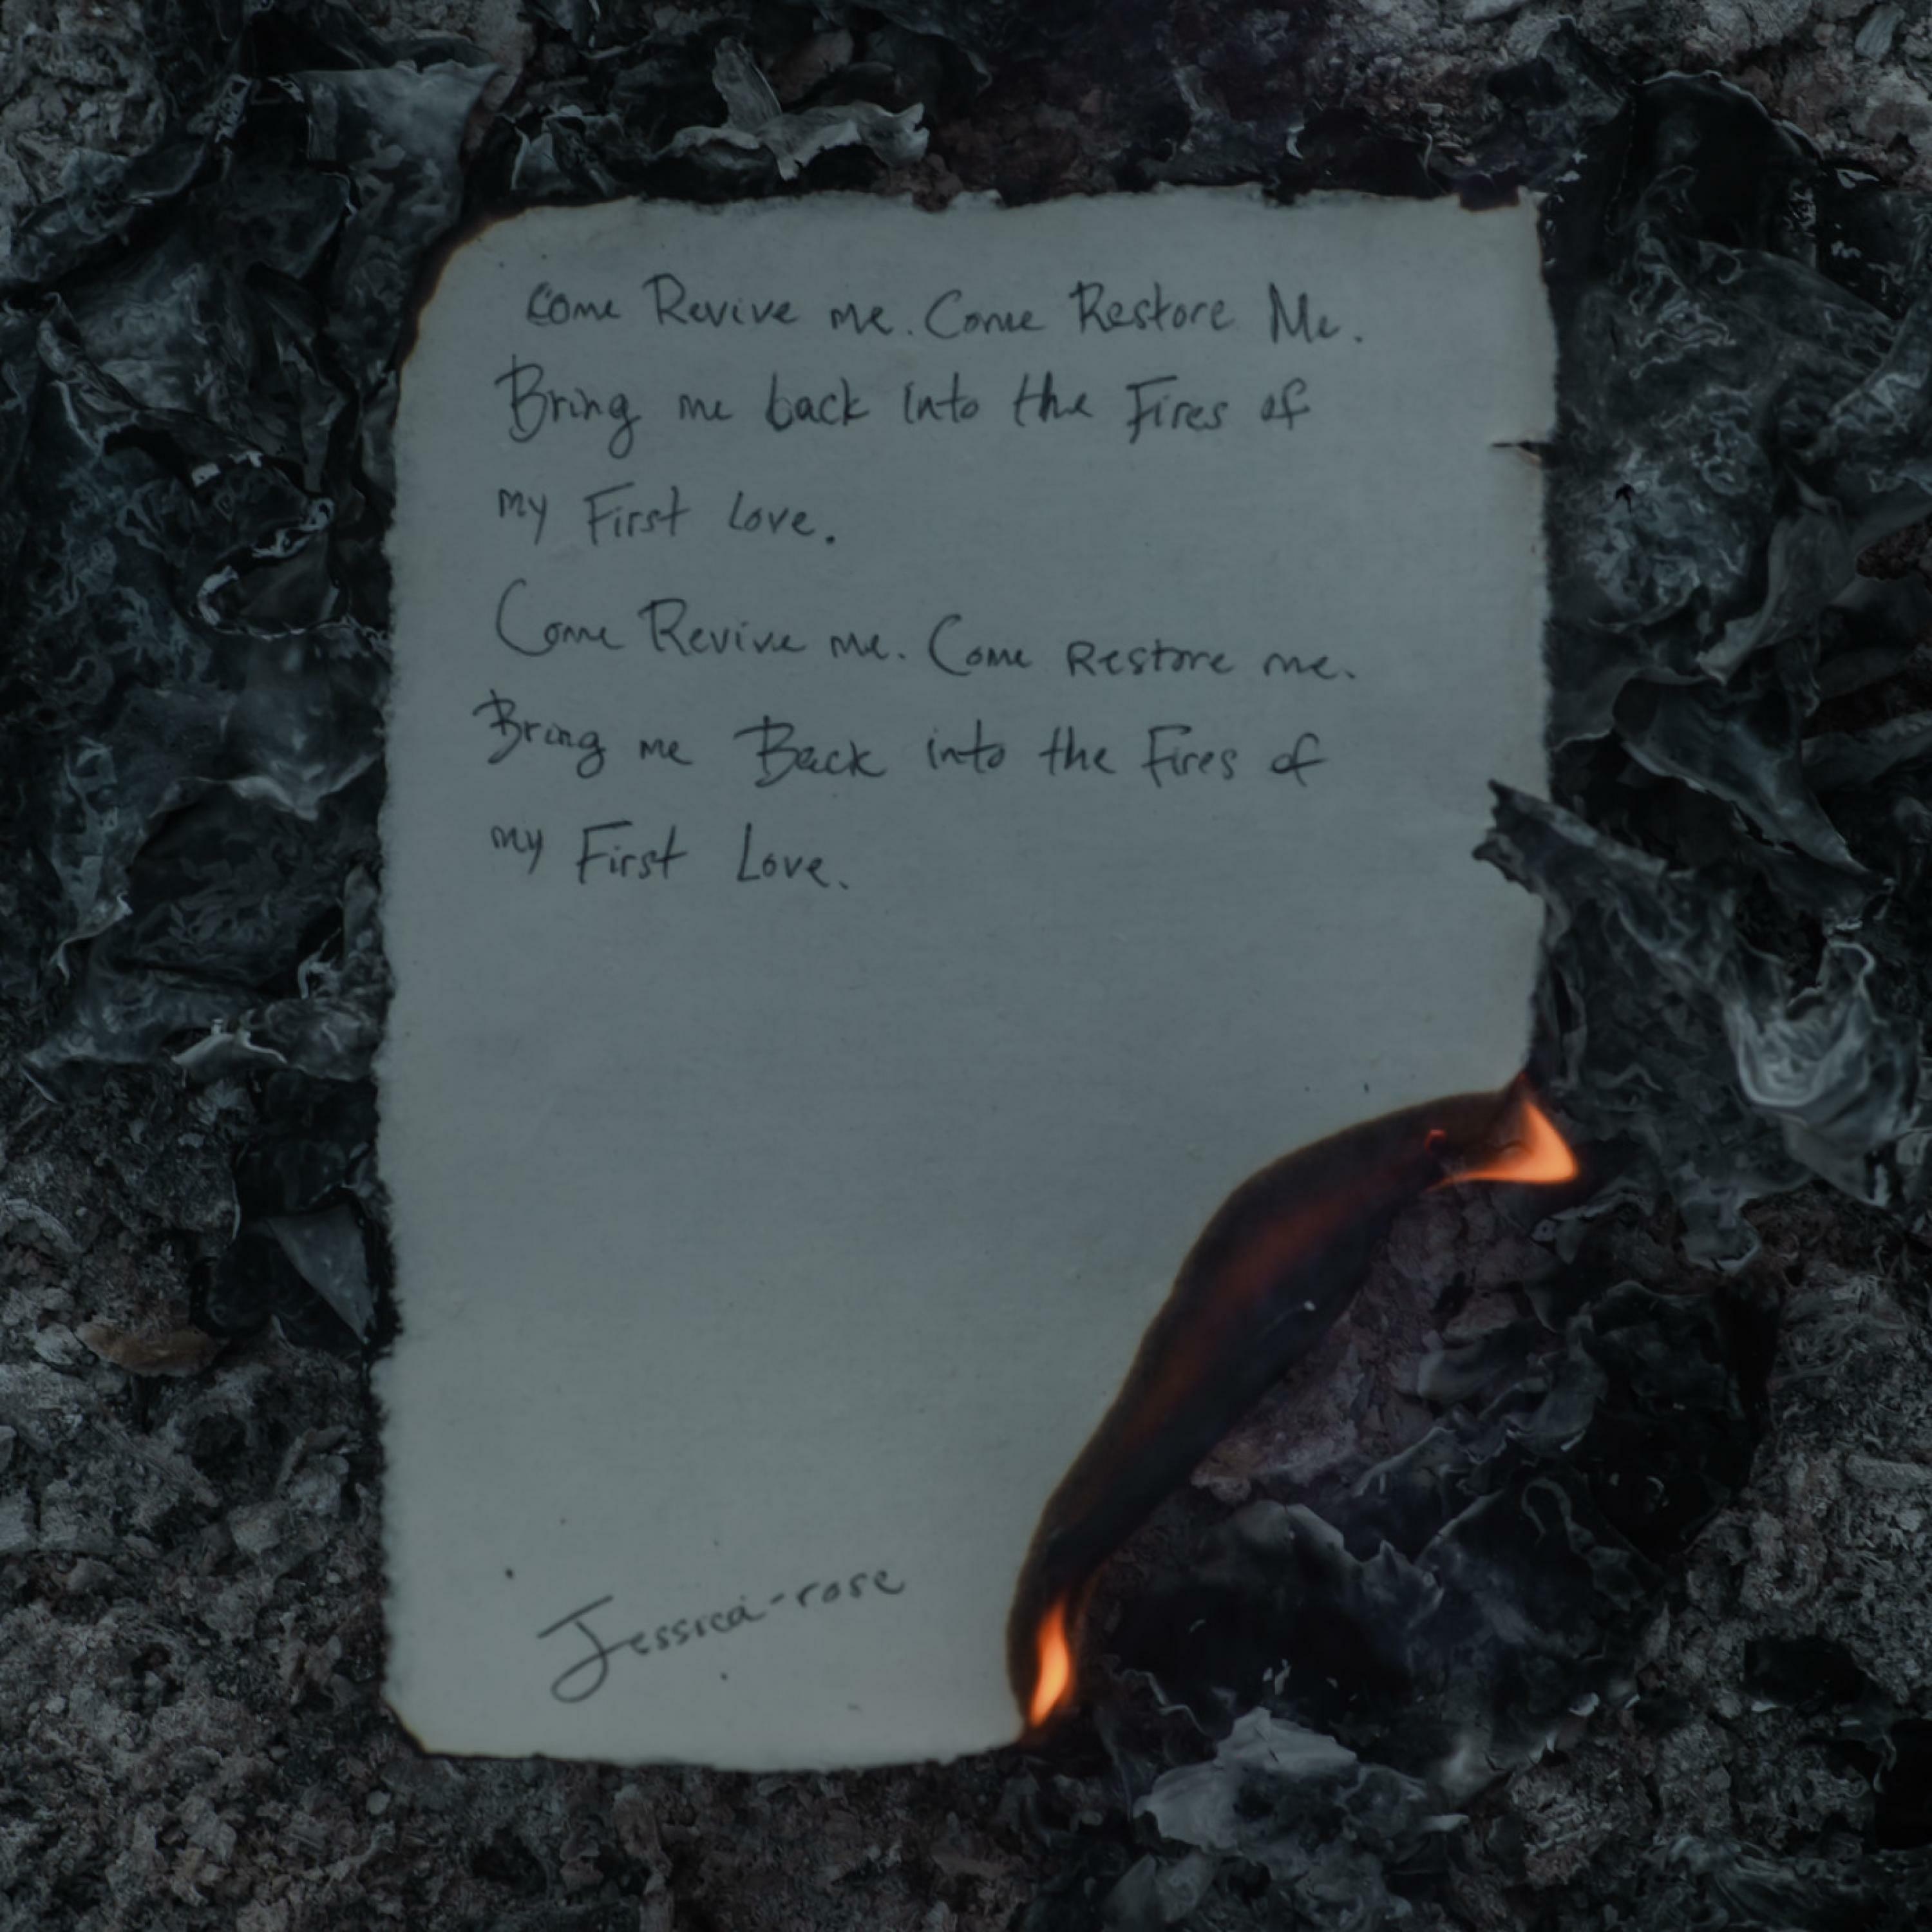 Come Revive me. Come Restore Me.
Bring me back into the Fires of
my First Love.
Come Revive me. Come Restore me.
Bring me Back into the Fires of
my First Love.
Jessica-rose